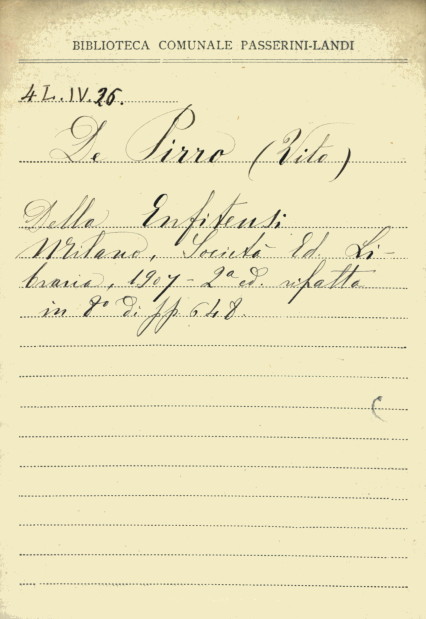 BIBLIOTECA COMUNALE PASSERINI-LANDI
4 L. IV. 26.
De Pirro (Vito)
Della Enfiteusi
Milano, Società Ed. Li-
braria, 1907 - 2ª ed. rifatta
in 8º di pp 648.